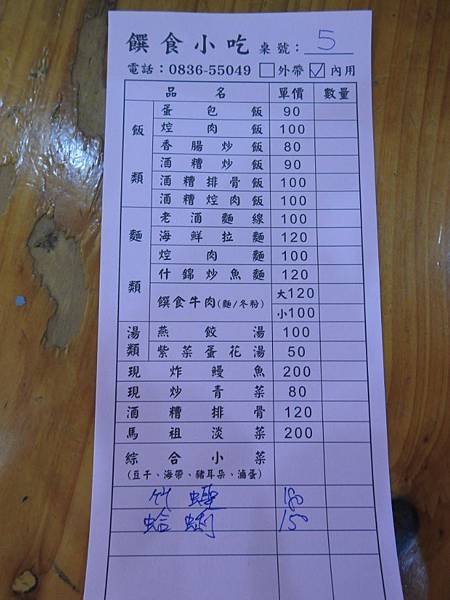 饌食小吃 桌號：5
電話：0836-55049 □外帶 ☑內用
品名 單價 數量
飯類
蛋包飯 90
焢肉飯 100
香腸炒飯 80
酒糟炒飯 90
酒糟排骨飯 100
酒糟焢肉飯 100
麵類
老酒麵線 100
海鮮拉麵 120
焢肉麵 100
什錦炒魚麵 120
饌食牛肉(麵/冬粉) 大120
小100
湯類
燕餃湯 100
紫菜蛋花湯 50
現炸鰻魚 200
現炒青菜 80
酒糟排骨 120
馬祖淡菜 200
綜合小菜
(豆干、海帶、豬耳朵、滷蛋)
竹蟶 180
蛤蜊 150